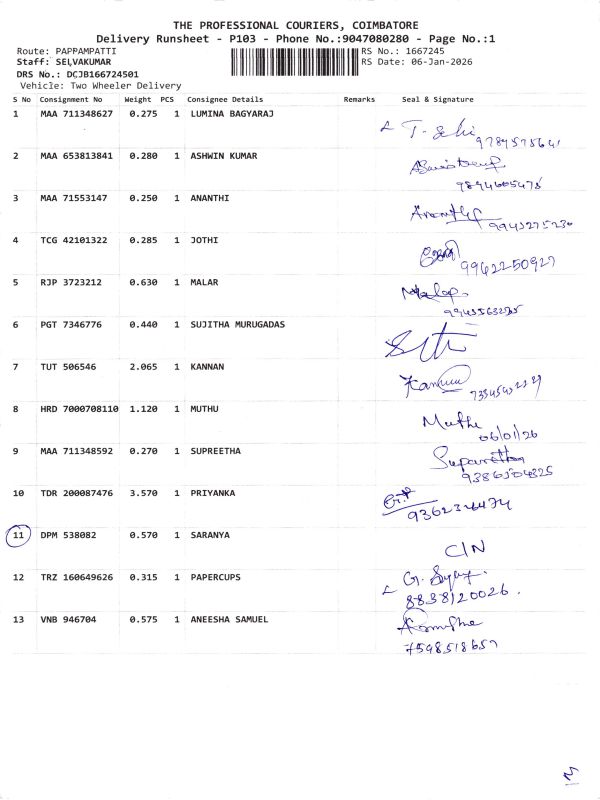 THE PROFESSIONAL COURIERS, COIMBATORE
Delivery Runsheet - P103 - Phone No.:9047080280 - Page No.:1
Route: PAPPAMPATTI RS No.: 1667245
Staff: SELVAKUMAR RS Date: 06-Jan-2026
DRS No.: DCJB166724501
Vehicle: Two Wheeler Delivery
S No Consignment No Weight PCS Consignee Details Remarks Seal & Signature
1 MAA 711348627 0.275 1 LUMINA BAGYARAJ
2 MAA 653813841 0.280 1 ASHWIN KUMAR
3 MAA 71553147 0.250 1 ANANTHI
4 TCG 42101322 0.285 1 JOTHI
9962250927
5 RJP 3723212 0.630 1 MALAR
6 PGT 7346776 0.440 1 SUJITHA MURUGADAS
7 TUT 506546 2.065 1 KANNAN
8 HRD 7000708110 1.120 1 MUTHU
06/01/26
9 MAA 711348592 0.270 1 SUPREETHA
10 TDR 200087476 3.570 1 PRIYANKA
11 DPM 538082 0.570 1 SARANYA
C/N
12 TRZ 160649626 0.315 1 PAPERCUPS
8838120026.
13 VNB 946704 0.575 1 ANEESHA SAMUEL